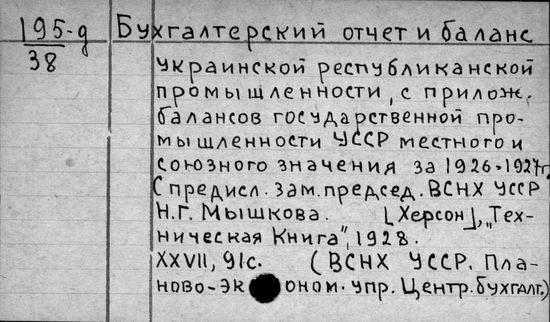 195-д
38
Бухгалтерский отчет и баланс
украинской республиканской
промышленности, с прилож.
балансов государственной про-
мышленности УССР местного и
союзного значения за 1926-1927г.
С предисл. зам. председ. ВСНХ УССР
Н.Г. Мышкова. [Херсон], „Тех-
ническая Книга", 1928.
XXVII, 91с. (ВСНХ УССР. Пла-
ново-эконом. упр. Центр. бухгалт.)